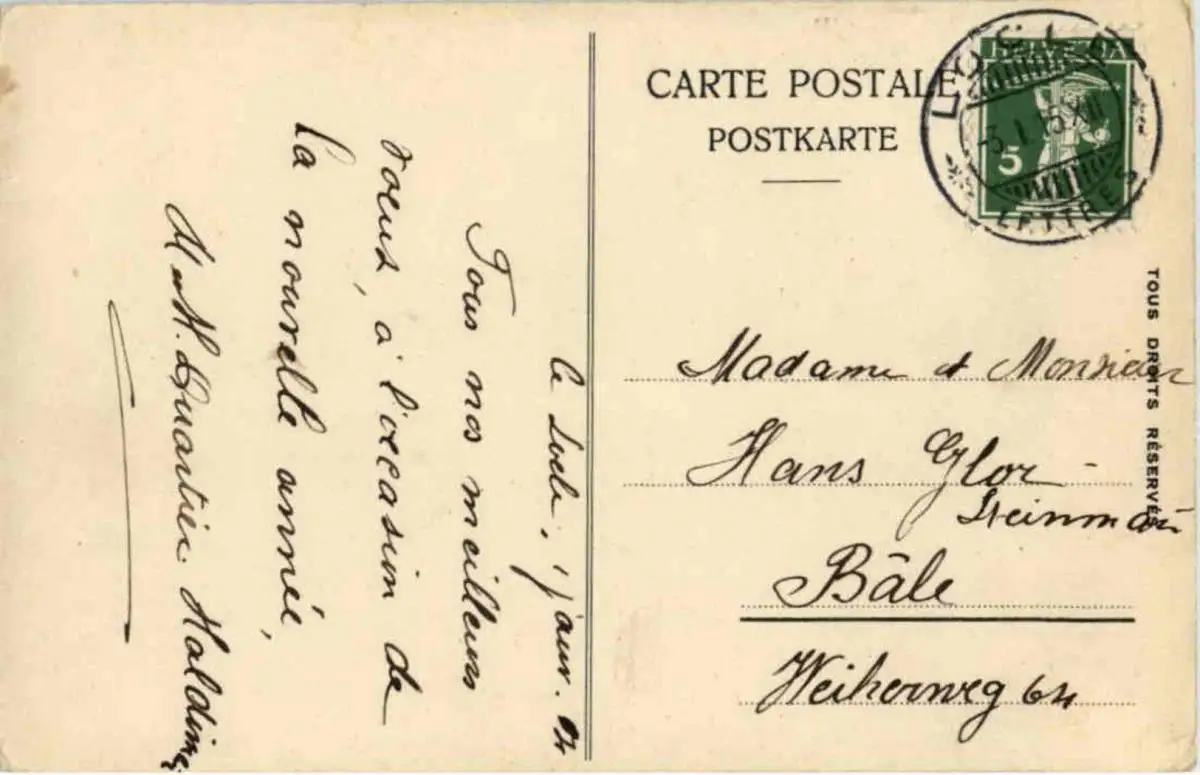 CARTE POSTALE
POSTKARTE
HELVETIA
5
LETTRES
TOUS DROITS RÉSERVÉS
Le Locle, 1 janv.
Tous nos meilleurs
voeux, à l'occasion de
la nouvelle année,
M et M. Quartier Haldim
Madame et Monsieur
Hans Glor -
Steinman
Bâle
Weiherweg 64